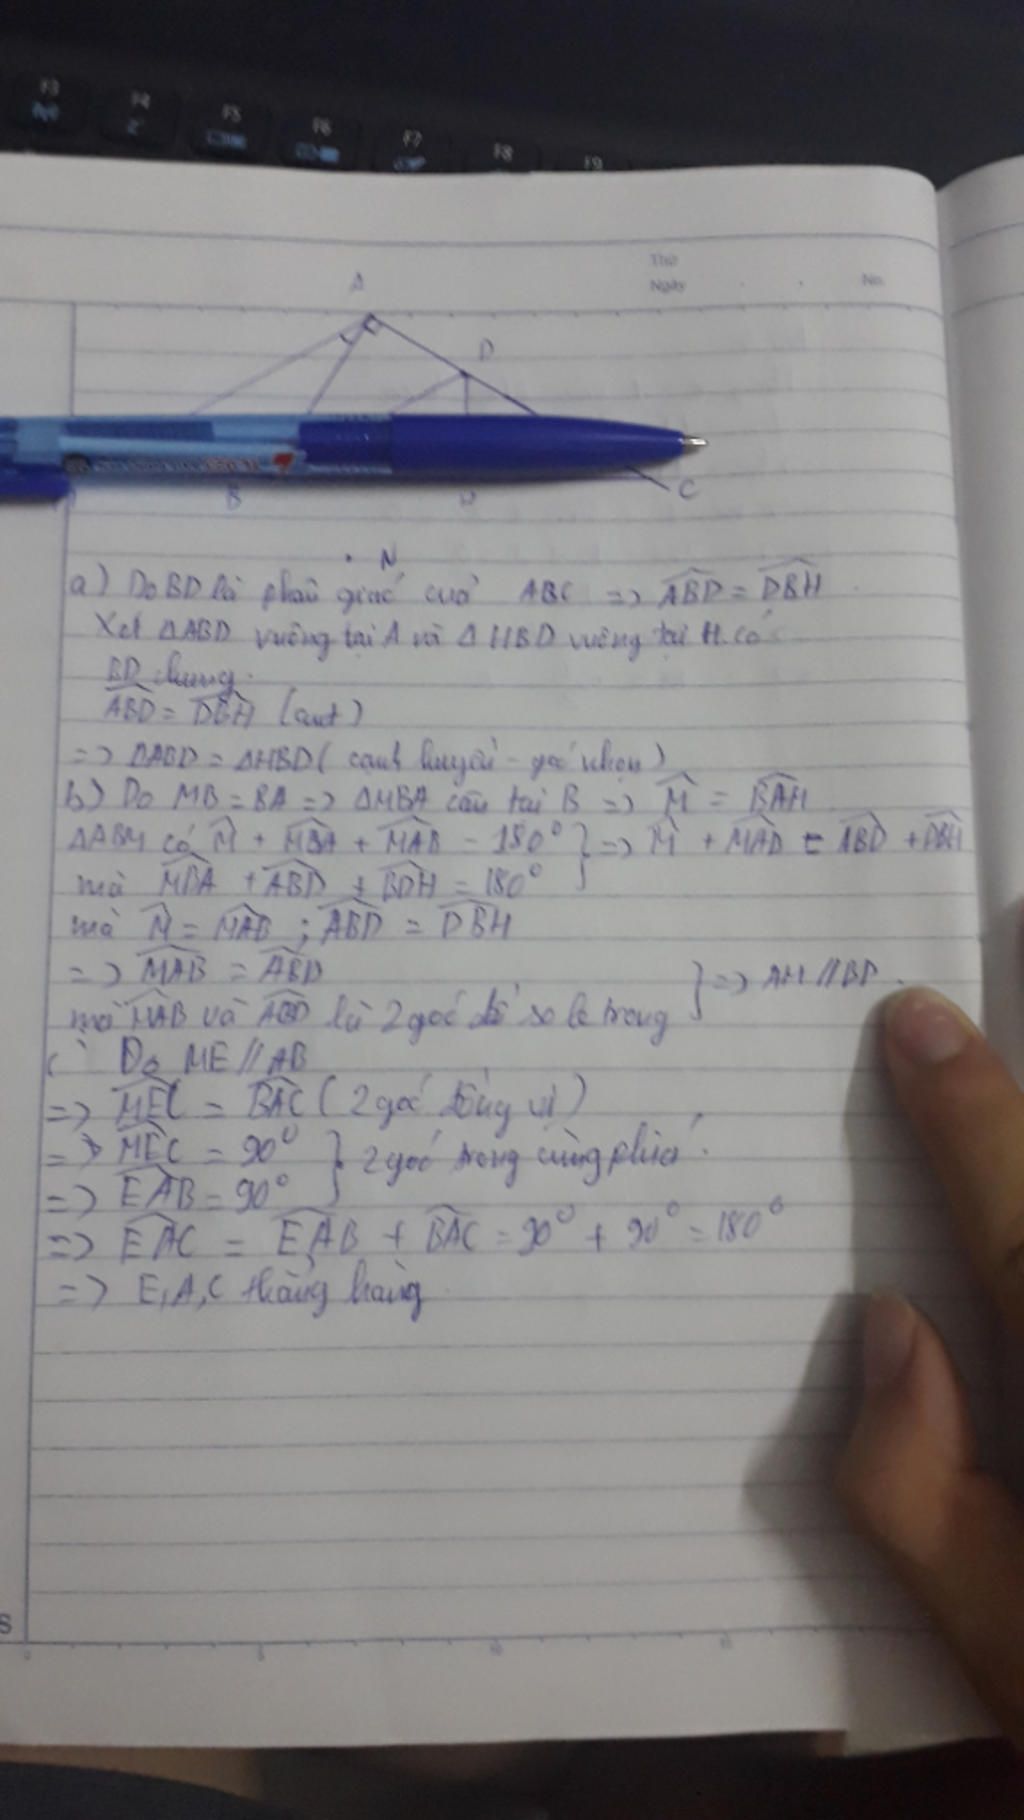 F3 F4 F5 F6 F7 F8 F9
Thứ
Ngày No.
A
D
B H C
N
a) Do BD là phân giác của ABC => ABD = DBH
Xét ΔABD vuông tại A và ΔHBD vuông tại H có
BD chung
ABD = DBH (cmt)
=> ΔABD = ΔHBD (cạnh huyền - góc nhọn)
b) Do MB = BA => ΔMBA cân tại B => M = BAH
ΔABM có M + MBA + MAB = 180° } => M + MAB = ABD + DBH
mà MBA + ABD + BDH = 180°
mà M = MAB ; ABD = DBH
=> MAB = ABD
mà MAB và ABD là 2 góc so le trong } => AM // BD.
c) Do ME // AB
=> MEC = BAC (2 góc đồng vị)
=> MEC = 90° } 2 góc trong cùng phía.
=> EAB = 90°
=> EAC = EAB + BAC = 90° + 90° = 180°
=> E, A, C thẳng hàng
S
0 5 10 15